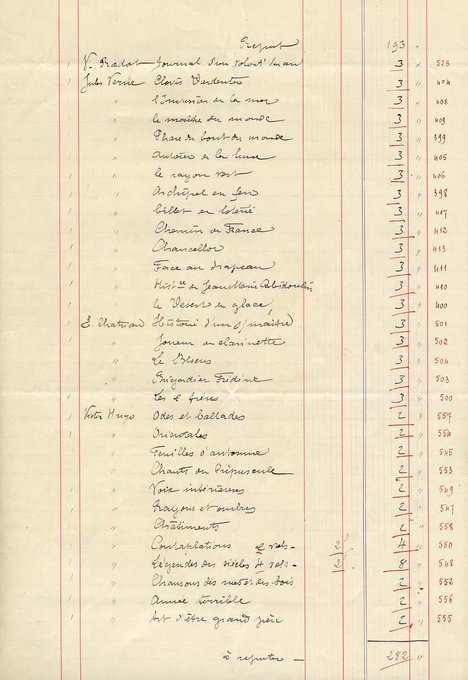 Report 193 "
1 V. Radot Journal d'un Volontre d'un an 3 " 528
1 Jules Verne Clovis Dardentor 3 " 404
" l'Invasion de la mer 3 " 408
" le maître du monde 3 " 409
" Phare du bout du monde 3 " 399
" Autour de la lune 3 " 405
1 " le rayon vert 3 " 406
" Archipel en feu 3 " 398
1 " billet de loterie 3 " 407
" Chemin de France 3 " 412
" Chancellor 3 " 413
" Face au drapeau 3 " 411
" Histre de Jean Marie Cabidoulin 3 " 410
1 " le Désert de glace 3 " 400
1 E. Chatrian Histoire d'un s/maître 3 " 501
" Joueur de clarinette 3 " 502
" Le Blocus 3 " 504
" Brigadier Frédéric 3 " 503
1 " Les 2 frères 3 " 500
1 Victor Hugo Odes et ballades 2 " 557
" Orientales 2 " 554
" Feuilles d'automne 2 " 545
" Chants du Crépuscule 2 " 553
" Voix intérieures 2 " 549
" Rayons et ombres 2 " 547
" Châtiments 2 " 558
" Contemplations 2 vols - 2 4 " 550
" Légendes des siècles 4 vols - 2 8 " 548
" Chansons des rues et des bois 2 " 552
" Année terrible 2 " 556
" Art d'être grand père 2 " 555
à reporter - 282 "